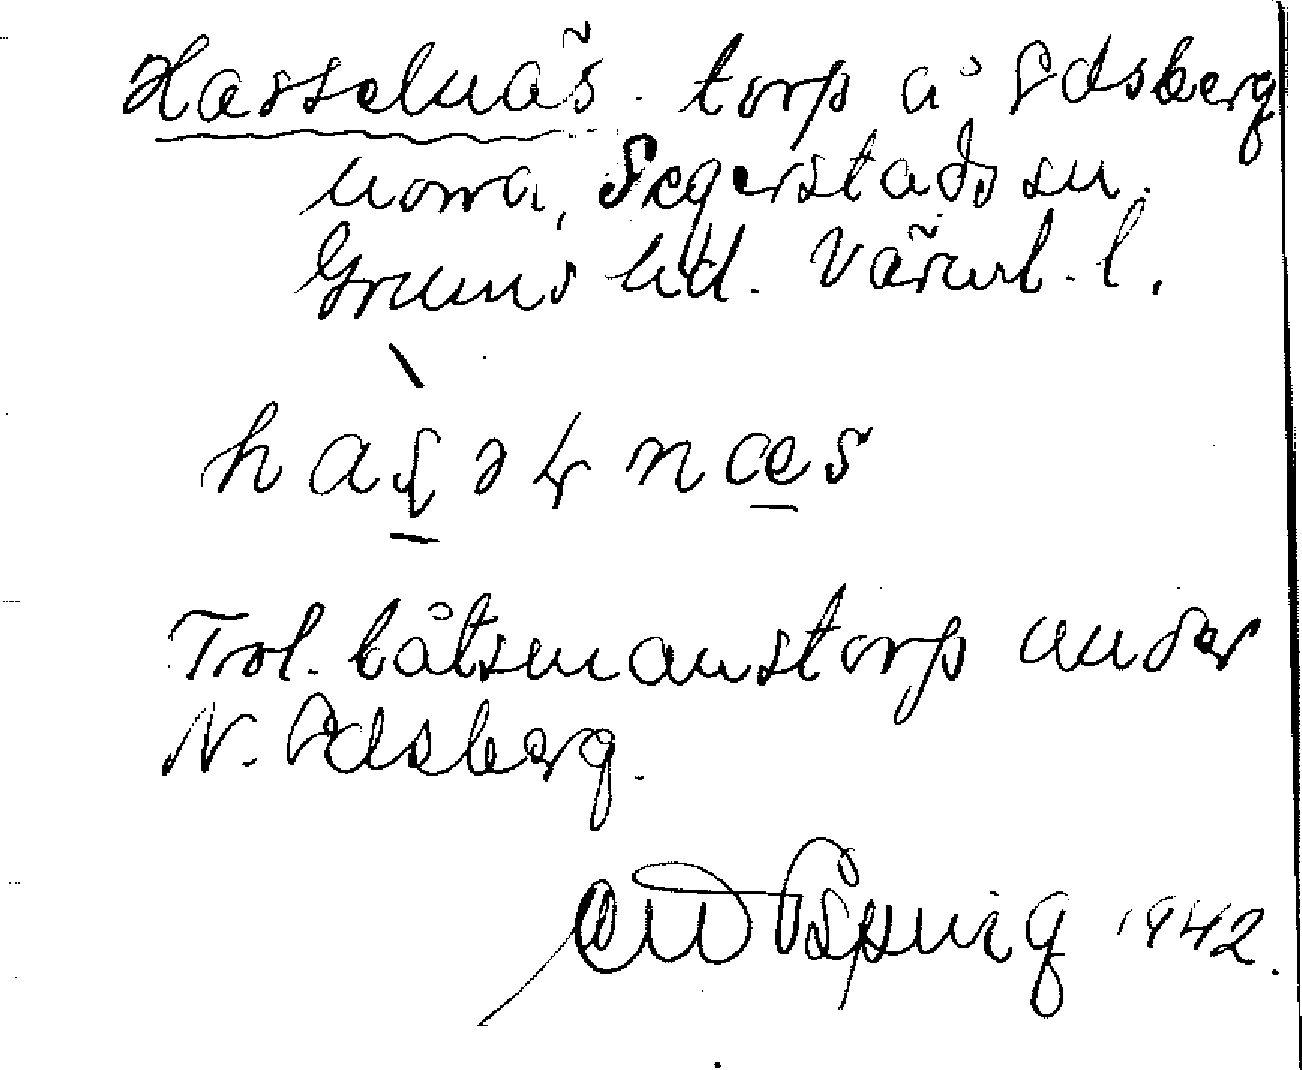 Hasselnäs. torp å Edsberg
norra, Segerstads sn.
Grums hd. Värml. l.
Trol. båtsmanstorp under
N. Edsberg.
1942.